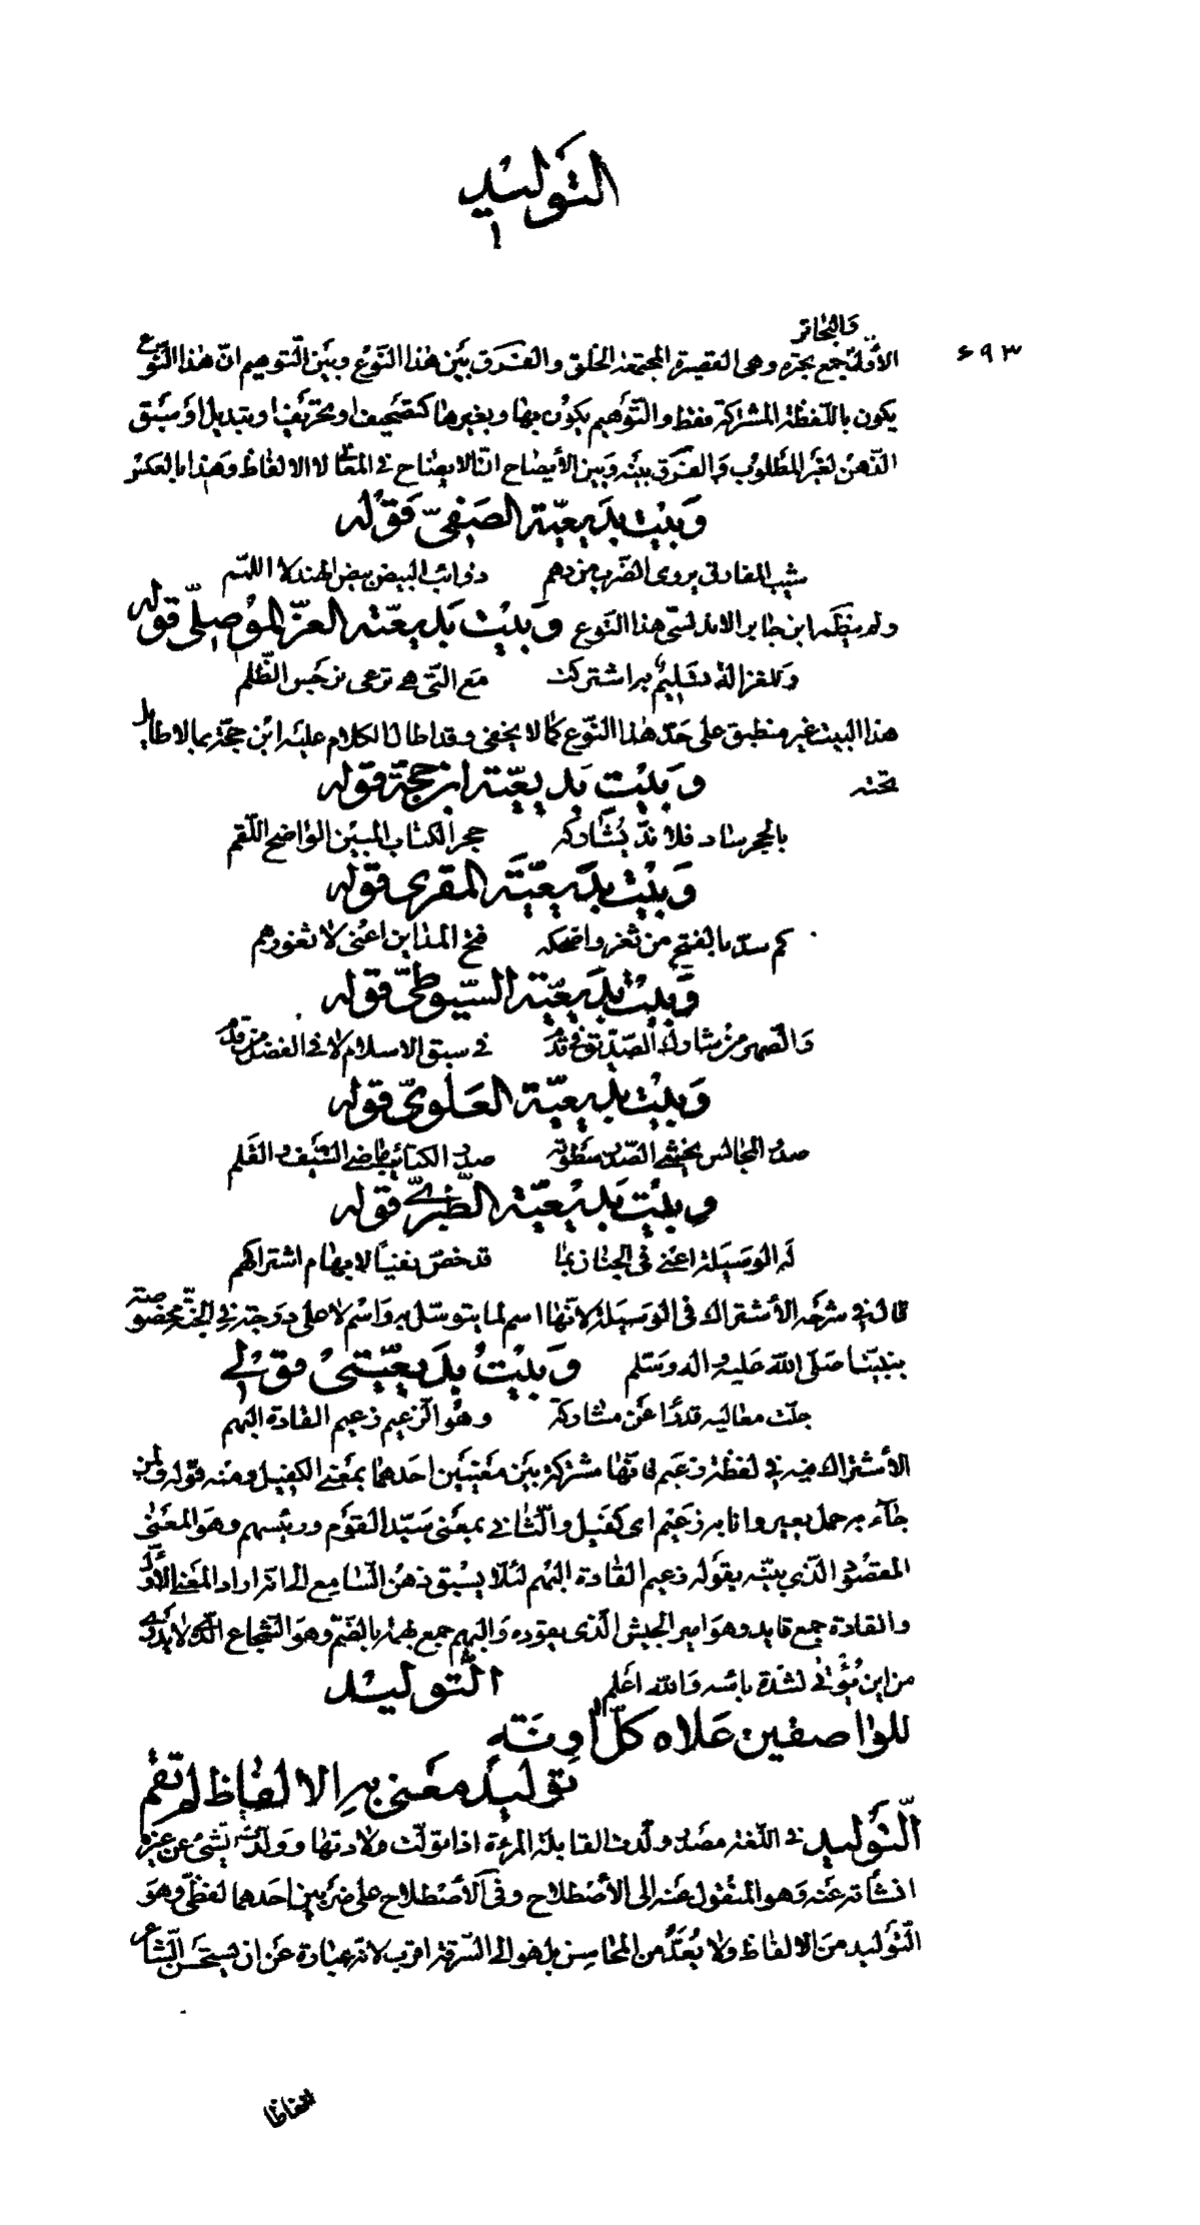 التوليد
١
والبحاتر
الأول جمع بحترة وهى القصيرة المجتمعة الخلق والفرق بين هذا النوع وبين التوهيم ان هذا النوع
٦٩٣
يكون باللفظة المشتركة فقط والتوهيم يكون بها وبغيرها كتصحيف او تحريف او تبديل او سبق
الذهن لغير المطلوب والفرق بينه وبين الأيضاح انّ الايضاح فى المعانى لا الالفاظ وهذا بالعكس
وبيت بديعية الصفىّ قوله
شيب المفارق يروى الضرب من دمهم ذوائب البيض بيض الهند لا اللمم
ولم ينظم ابن جابر الاندلسى هذا النوع وبيت بديعيته العزّ الموصلى قوله
وللغزالة تسليم به اشتركت مع التى هى ترعى نرجس الظلم
هذا البيت غير منطبق على حدّ هذا النوع كما لا يخفى وقد اطال الكلام عليه ابن حجّة بما لا طايل
تحته
وبيت بديعيته ابن حجة قوله
بالحجر ساد فلا ندّ يشاركه حجر الكتاب المبين الواضح اللقم
وبيت بديعيته المقرى قوله
كم سدّ بالفتح من ثغر واضحكه فتح المداين اعنى لا ثغورهم
وبيت بديعية السيوطىّ قوله
فى سبق الاسلام لا فى الفضل من قدم
وبيت بديعية العلوىّ قوله
صدر المجالس يخشى الصدر سطوته صدر الكتائب ماضى السيف والقلم
وبيت بديعية الطبرىّ قوله
له الوسيلة اعنى فى الجنان بما قد خصّ نفيًا لابهام اشتراكهم
قال فى شرحه الأشتراك فى الوسيلة لانها اسم لما يتوسّل به واسم لاعلى درجة فى الجنّة مخصوصة
بنبيّنا صلّى اللّه عليه واله وسلم وبيت بديعيّتى قولى
جلّت معاليه قدرًا عن مشاركة وهو الزعيم زعيم القادة البهم
الأشتراك فيه فى لفظة زعيم فانّها مشتركة بين معنيين احدهما بمعنى الكفيل ومنه قوله ولمن
جآء به حمل بعير وانا به زعيم اى كفيل والثانى بمعنى سيّد القوم ورئيسهم وهو المعنى
المقصود الذى بيّنه بقوله زعيم القادة البهم لئلّا يسبق ذهن السّامع الى انّه اراد المعنى الأوّل
والقادة جمع قايد وهو امير الجيش الذى يقوده والبهم جمع بهمة بالضمّ وهو الشجاع الذى لا يدرى
من اين يؤتى لشدّة باسه واللّه اعلم التوليد
للواصفين علاه كلّ اونة
توليد معنى به الالفاظ لم تقم
التوليد فى اللغة مصدر ولّدت القابلة المرءة اذا تولّت ولادتها وولّدت الشّئ عن غيره
انشأته عنه وهو المنقول عنه الى الأصطلاح وفى الأصطلاح على ضربين احدهما لفظىّ وهو
التّوليد من الالفاظ ولا يُعدّ من المحاسن بل هو الى السّرقة اقرب لانه عبارة عن ان يستحسن الشاعر
الفاظا